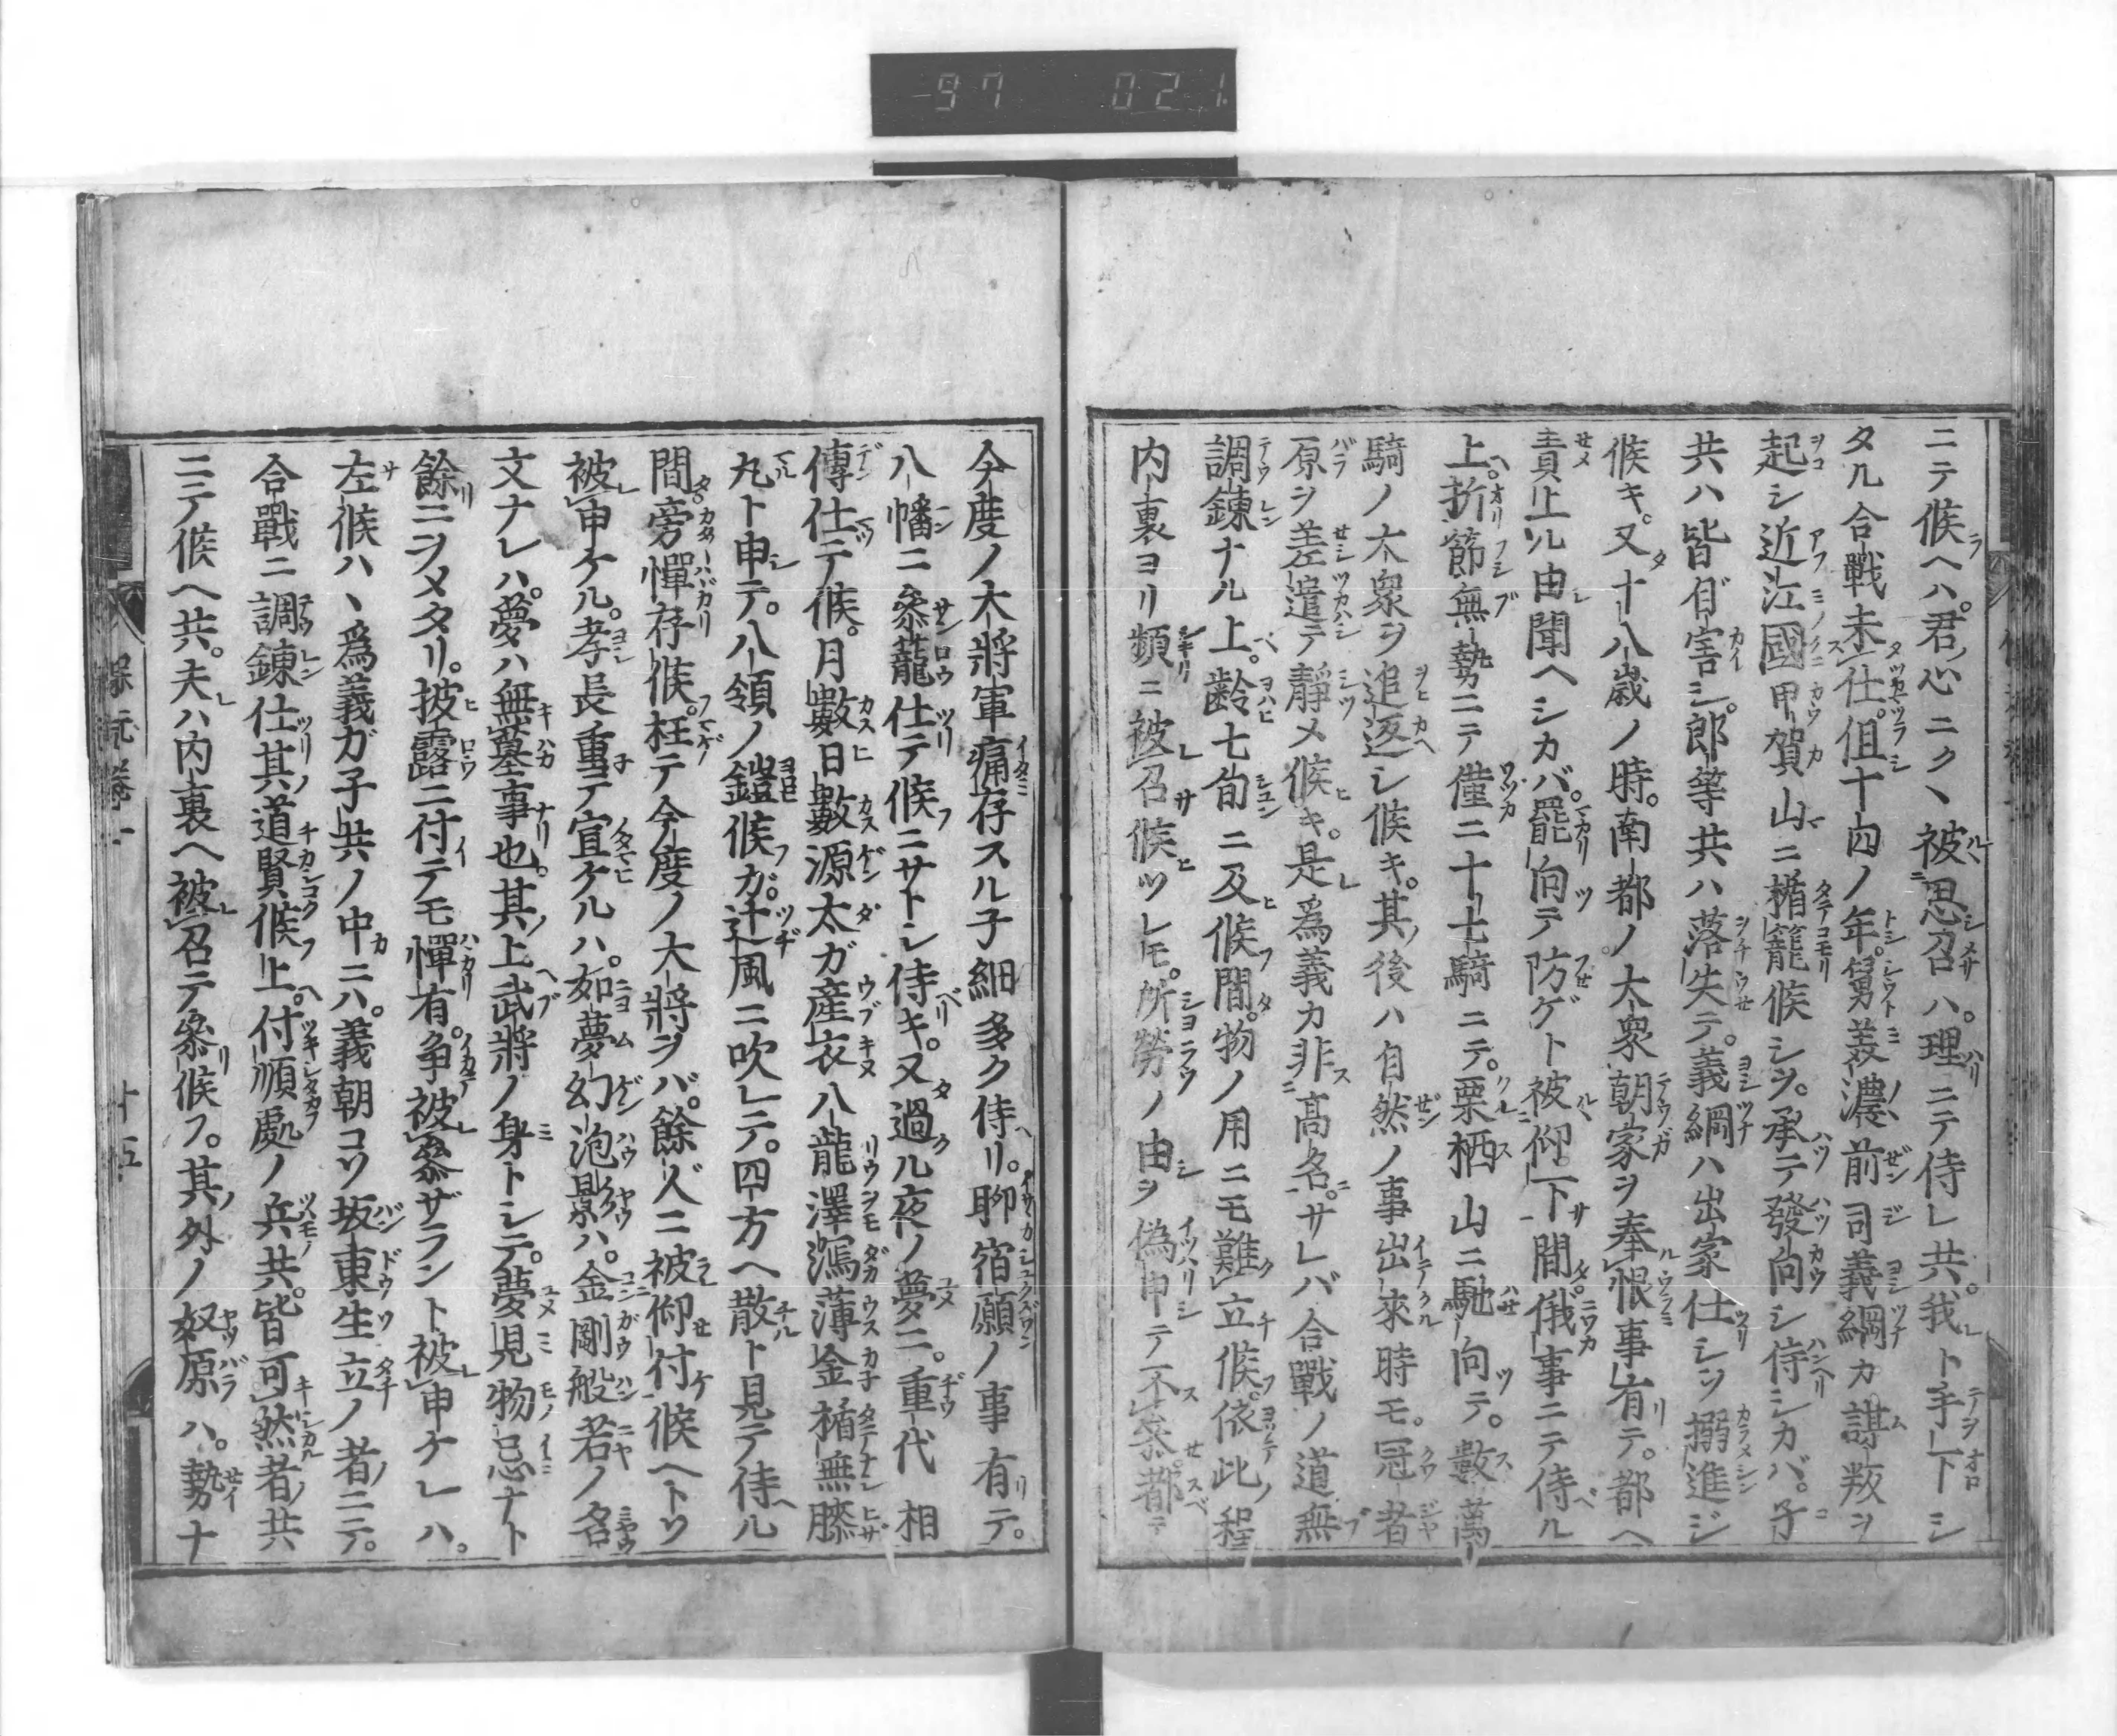 97 021
ニテ候ヘハ。君ノ心ニクヽ被思召ハ。理ニテ侍レ共。我ト手ヲ下シ
タル合戰未仕。但十四ノ年。舅美濃前司義綱カ謀叛ヲ
起シ近江國甲賀山ニ楯籠候シヲ。承テ發向シ侍シカバ。子
共ハ皆自害シ。郎等共ハ落失テ。義綱ハ出家仕シヲ搦進ジ
候キ。又十八歳ノ時。南都ノ大衆朝家ヲ奉恨事有テ。都ヘ
責上ル由聞ヘシカバ。罷向テ防ゲト被仰下間。俄事ニテ侍ル
上。折節無勢ニテ僅ニ十七騎ニテ。栗栖山ニ馳向テ。數萬
騎ノ大衆ヲ追返シ候キ。其ノ後ハ自然ノ事出來時モ。冠者
原ヲ差遣テ靜メ候キ。是爲義カ非高名。サレバ合戰ノ道無
調錬ナル上。齢七旬ニ及候間。物ノ用ニモ難立候。依此程
内裏ヨリ頻ニ被召候ツレモ。所勞ノ由ヲ偽申テ不參。都テ
今度ノ大將軍痛存スル子細多ク侍リ。聊宿願ノ事有テ。
八幡ニ參籠仕テ候ニサトシ侍キ。又過ル夜ノ夢ニ。重代相
傳仕テ候。月數日數源太ガ產衣八龍澤瀉薄金楯無膝
丸ト申テ。八領ノ鎧候ガ。辻風ニ吹レテ。四方ヘ散ト見テ侍ル
間旁憚存候。枉テ今度ノ大將ヲバ。餘人ニ被仰付候ヘトソ
被申ケル。孝長重テ宣ケルハ。如夢幻泡影ハ。金剛般若ノ名
文ナレハ。夢ハ無墓事也。其上武將ノ身トシテ。夢見物忌ナト
餘ニヲメタリ。披露ニ付テモ憚有。争被參ザラント被申ケレハ。
左候ハヽ爲義ガ子共ノ中ニハ。義朝コソ坂東生立ノ者ニテ。
合戰ニ調錬仕其道賢候上。付順處ノ兵共。皆可然者共
ニテ候ヘ共。夫ハ内裏ヘ被召テ參候フ。其外ノ奴原ハ。勢ナ
保元卷一
十五